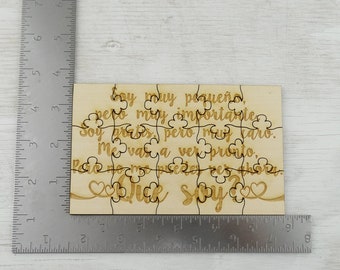 Soy muy pequeño,
pero muy importante.
Soy gratis, pero muy caro.
Me vas a ver pronto.
Pero no me puedes ver ahora.
¿Que soy?
1 2 3 4 5 6 7 8
1 2 3 4 5